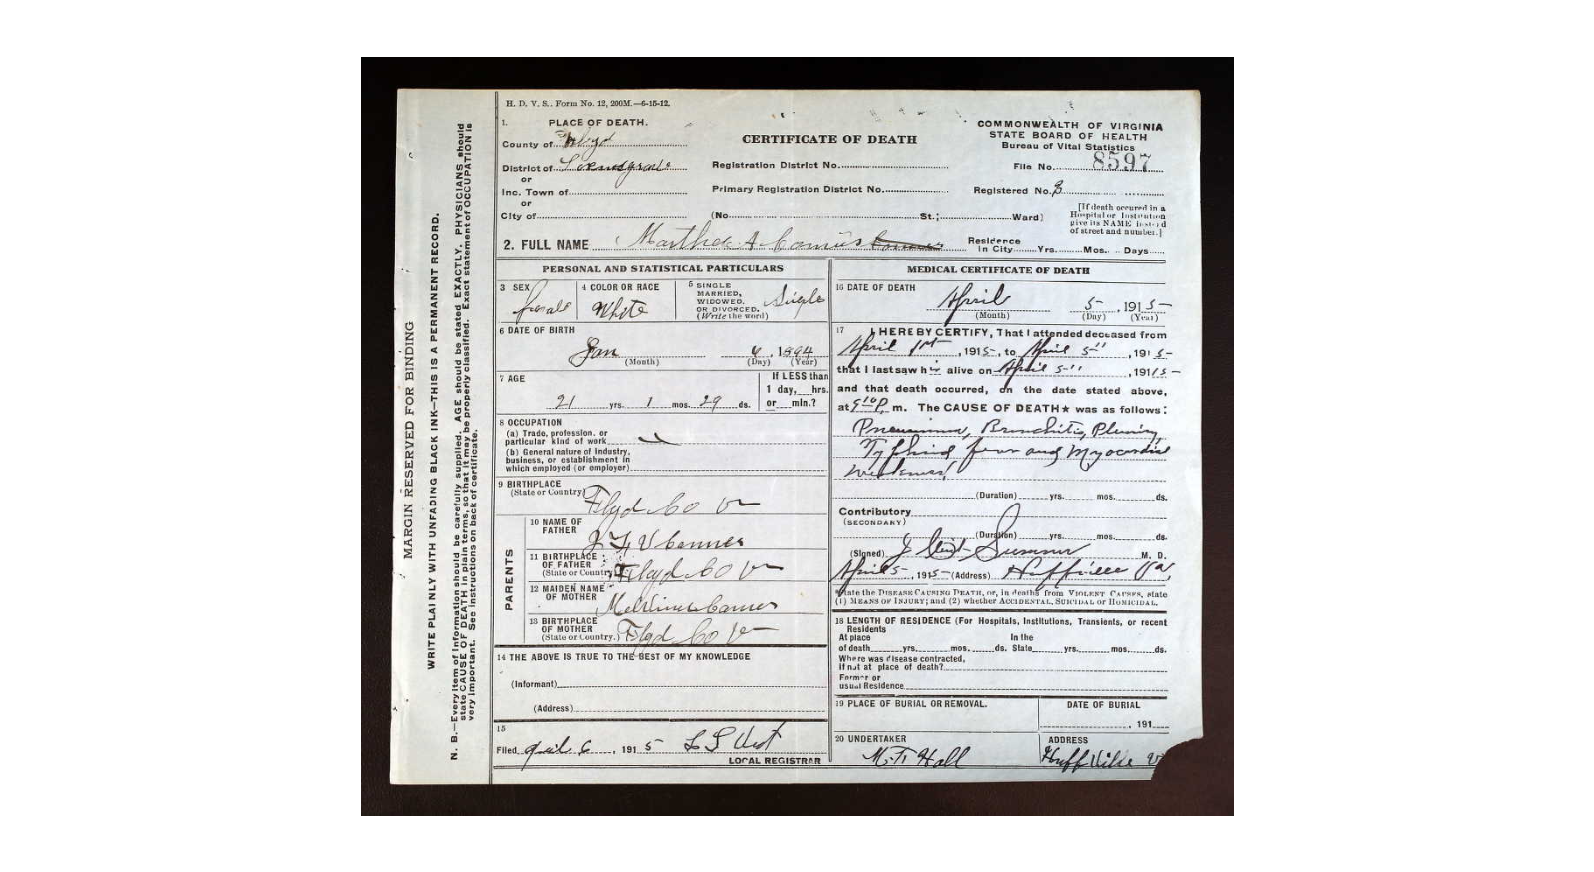 H. D. V. S.. Form No. 12, 200M.—6-15-12.
1. PLACE OF DEATH.
County of Floyd
District of Locustgrove
or
Inc. Town of
or
City of
CERTIFICATE OF DEATH
Registration District No.
Primary Registration District No.
(No. St.; Ward)
COMMONWEALTH OF VIRGINIA
STATE BOARD OF HEALTH
Bureau of Vital Statistics
File No. 8597
Registered No. 8
[If death occured in a
Hospital or Institution
give its NAME instead
of street and number.]
2. FULL NAME Martha A
Residence
In City Yrs. Mos. Days
PERSONAL AND STATISTICAL PARTICULARS
3 SEX
female
4 COLOR OR RACE
White
5 SINGLE
MARRIED,
WIDOWED.
OR DIVORCED.
(Write the word)
Single
6 DATE OF BIRTH
Jan 6, 1894
(Month) (Day) (Year)
7 AGE
21 yrs. 1 mos. 29 ds.
If LESS than
1 day, hrs.
or min.?
8 OCCUPATION
(a) Trade, profession. or
particular kind of work
(b) General nature of Industry,
business, or establishment in
which employed (or employer)
9 BIRTHPLACE
(State or Country)
Floyd Co Va
PARENTS
10 NAME OF
FATHER
11 BIRTHPLACE
OF FATHER
(State or Country)
Floyd Co Va
12 MAIDEN NAME
OF MOTHER
13 BIRTHPLACE
OF MOTHER
(State or Country.)
Floyd Co Va
14 THE ABOVE IS TRUE TO THE BEST OF MY KNOWLEDGE
(Informant)
(Address)
15
Filed April 6, 1915 L S West
LOCAL REGISTRAR
MEDICAL CERTIFICATE OF DEATH
16 DATE OF DEATH
April 5, 1915
(Month) (Day) (Year)
17 I HEREBY CERTIFY, That I attended deceased from
April 1st, 1915, to April 5", 1915
that I last saw h alive on April 5", 1915
and that death occurred, on the date stated above,
at m. The CAUSE OF DEATH★ was as follows:
Pneumonia, Bronchitis, Pleurisy,
Typhoid fever and Myocardial
weakness
(Duration) yrs. mos. ds.
Contributory
(SECONDARY)
(Duration) yrs. mos. ds.
(Signed) J Summer M. D.
April 5, 1915 (Address) Huffville Va,
*State the DISEASE CAUSING DEATH, or, in deaths from VIOLENT CAUSES, state
(1) MEANS OF INJURY; and (2) whether ACCIDENTAL, SUICIDAL or HOMICIDAL.
18 LENGTH OF RESIDENCE (For Hospitals, Institutions, Transients, or recent
Residents
At place In the
of death yrs. mos. ds. State yrs. mos. ds.
Where was disease contracted,
if not at place of death?
Former or
usual Residence
19 PLACE OF BURIAL OR REMOVAL.
DATE OF BURIAL
, 191
20 UNDERTAKER
M. T. Hall
ADDRESS
Huffville V
MARGIN RESERVED FOR BINDING
WRITE PLAINLY WITH UNFADING BLACK INK—THIS IS A PERMANENT RECORD.
N. B.—Every item of information should be carefully supplied. AGE should be stated EXACTLY. PHYSICIANS should
state CAUSE OF DEATH in plain terms, so that it may be properly classified. Exact statement of OCCUPATION is
very important. See instructions on back of certificate.